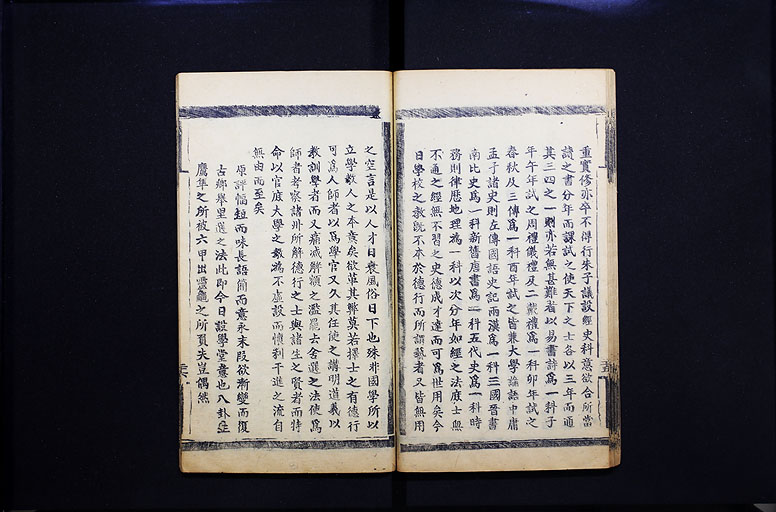 重實修亦卒不得行朱子議設經史科意欲合所當
讀之書分年而課試之使天下之士各以三年而通
其三四之一則亦若無甚難者以易書詩爲一科子
年午年試之周禮儀禮及二戴禮爲一科卯年試之
春秋及三傳爲一科酉年試之皆兼大學論語中庸
孟子諸史則左傳國語史記兩漢爲一科三國晉書
南北史爲一科新舊唐書爲一科五代史爲一科時
務則律歷地理爲一科以次分年如經之法庶士無
不通之經無不習之史德成才達而可爲世用矣今
日學校之教旣不本於德行而所謂藝者又皆無用
之空言是以人才日衰風俗日下也殊非國學所以
立學敎人之本意矣欲革其弊莫若擇士之有德行
可爲人師者以爲學官又久其任使之講明道義以
敎訓學者而又痛减解額之濫罷去舍選之法使爲
師者考察諸州所解德行之士與諸生之賢者而特
命以官庶大學之敎爲不虛設而懷利干進之流自
無由而至矣
原評幅短而味長語簡而意永末段欲漸變而復
古鄕舉里選之法此卽今日設學堂意也八卦生
鷹隼之所被六甲出靈龜之所負夫豈偶然